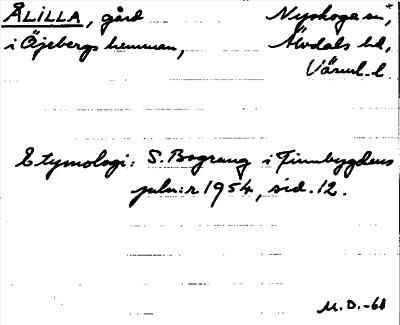 ÅLILLA, gård
i Öjebergs hemman,
Nyskoga sn,
Älvdals hd,
Värml. l.
Etymologi: S. Bograng i Finnbygdens
juln:r 1954, sid. 12.
M.D.-68